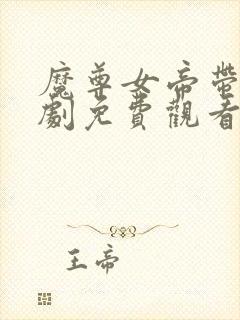 魔尊女帝
劇免費觀看
王帝